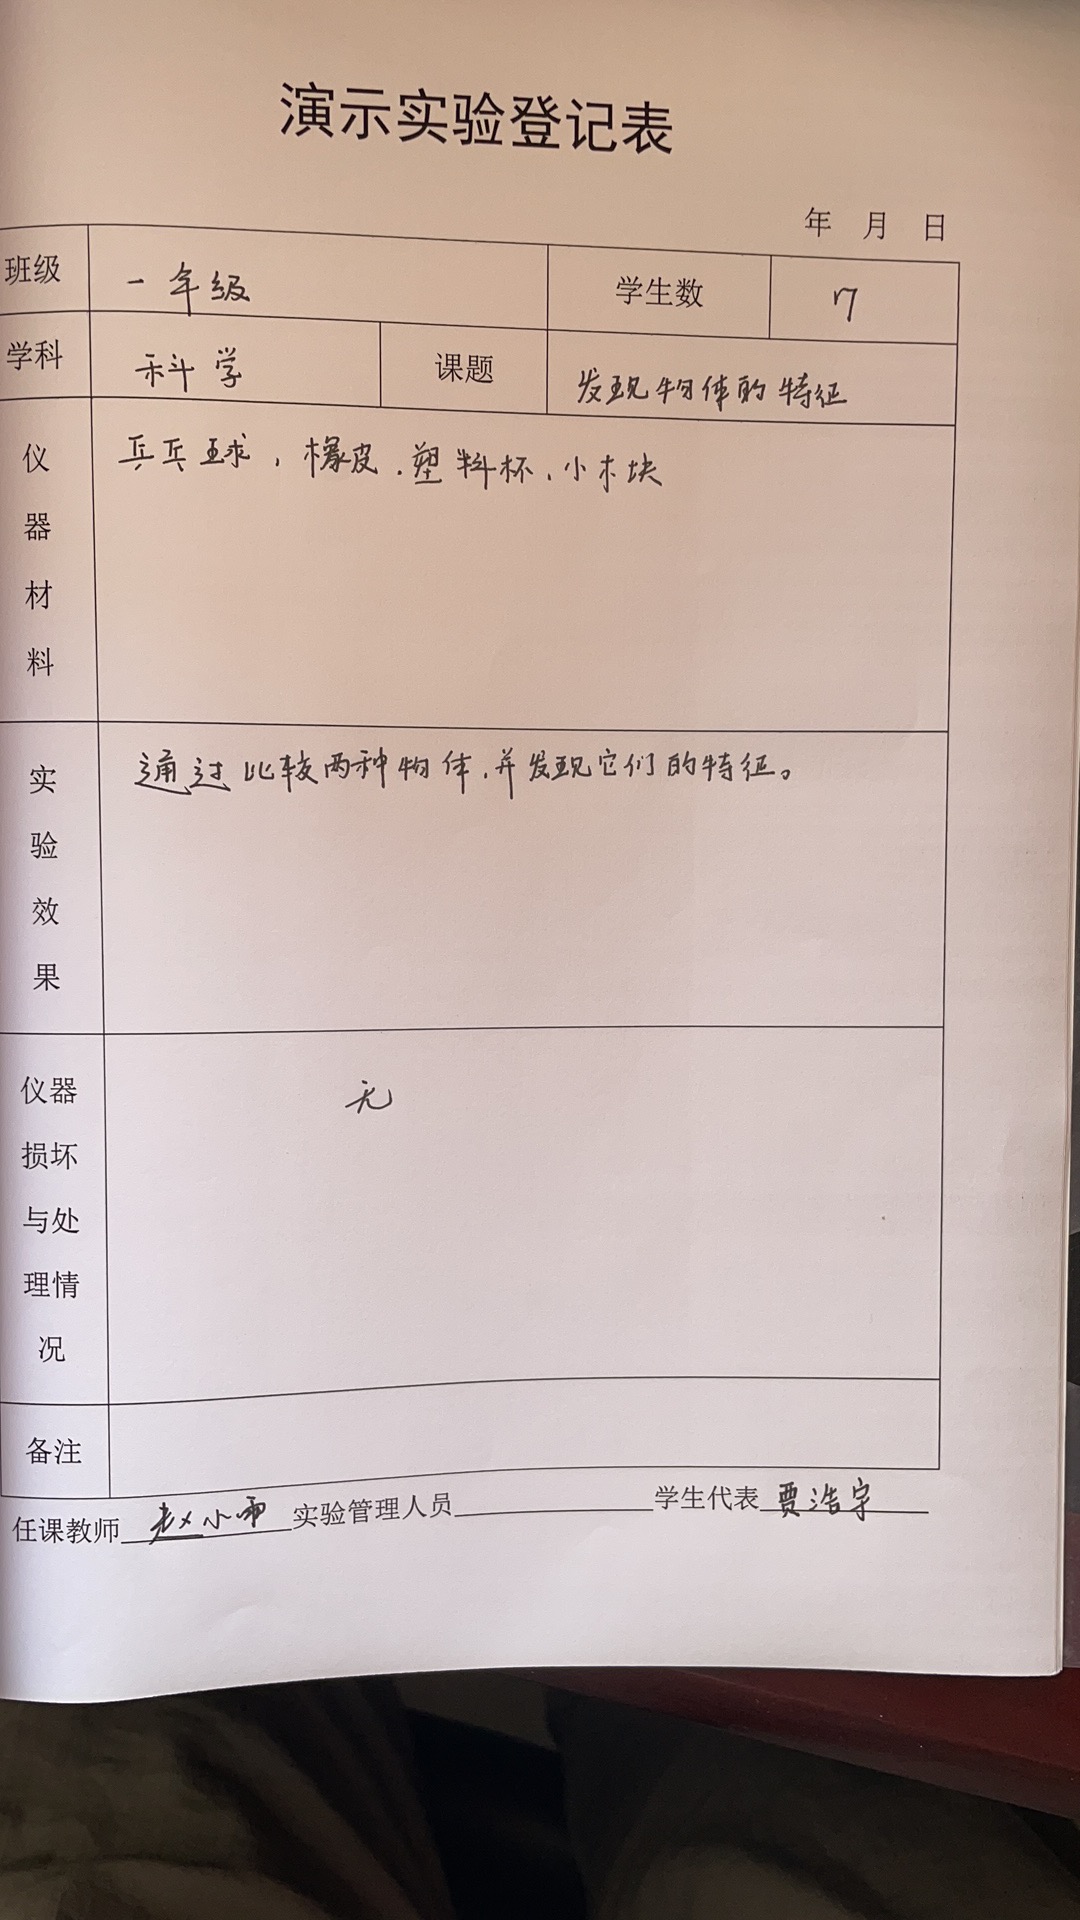 演示实验登记表
年 月 日
班级 一年级 学生数 7
学科 科学 课题 发现物体的特征
仪器材料 乒乓球，橡皮、塑料杯、小木块
实验效果 通过比较两种物体，并发现它们的特征。
仪器损坏与处理情况 无
备注
任课教师 赵小雨 实验管理人员 学生代表 贾浩宇